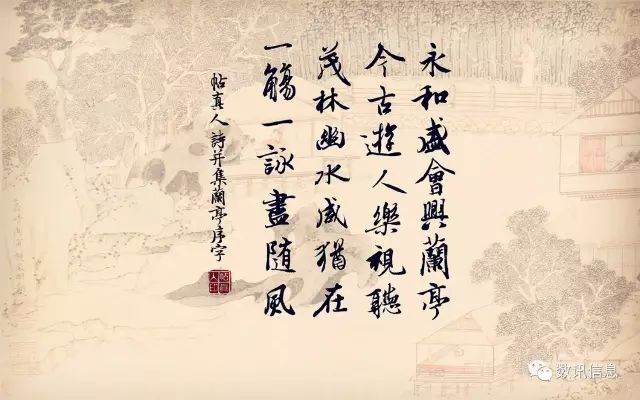 永和盛會興蘭亭
今古遊人樂視聽
茂林幽水感猶在
一觴一詠盡隨風
帖真人詩并集蘭亭序字
数讯信息